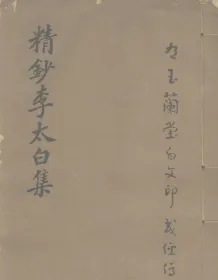 有玉蘭堂白文印
精鈔李太白集